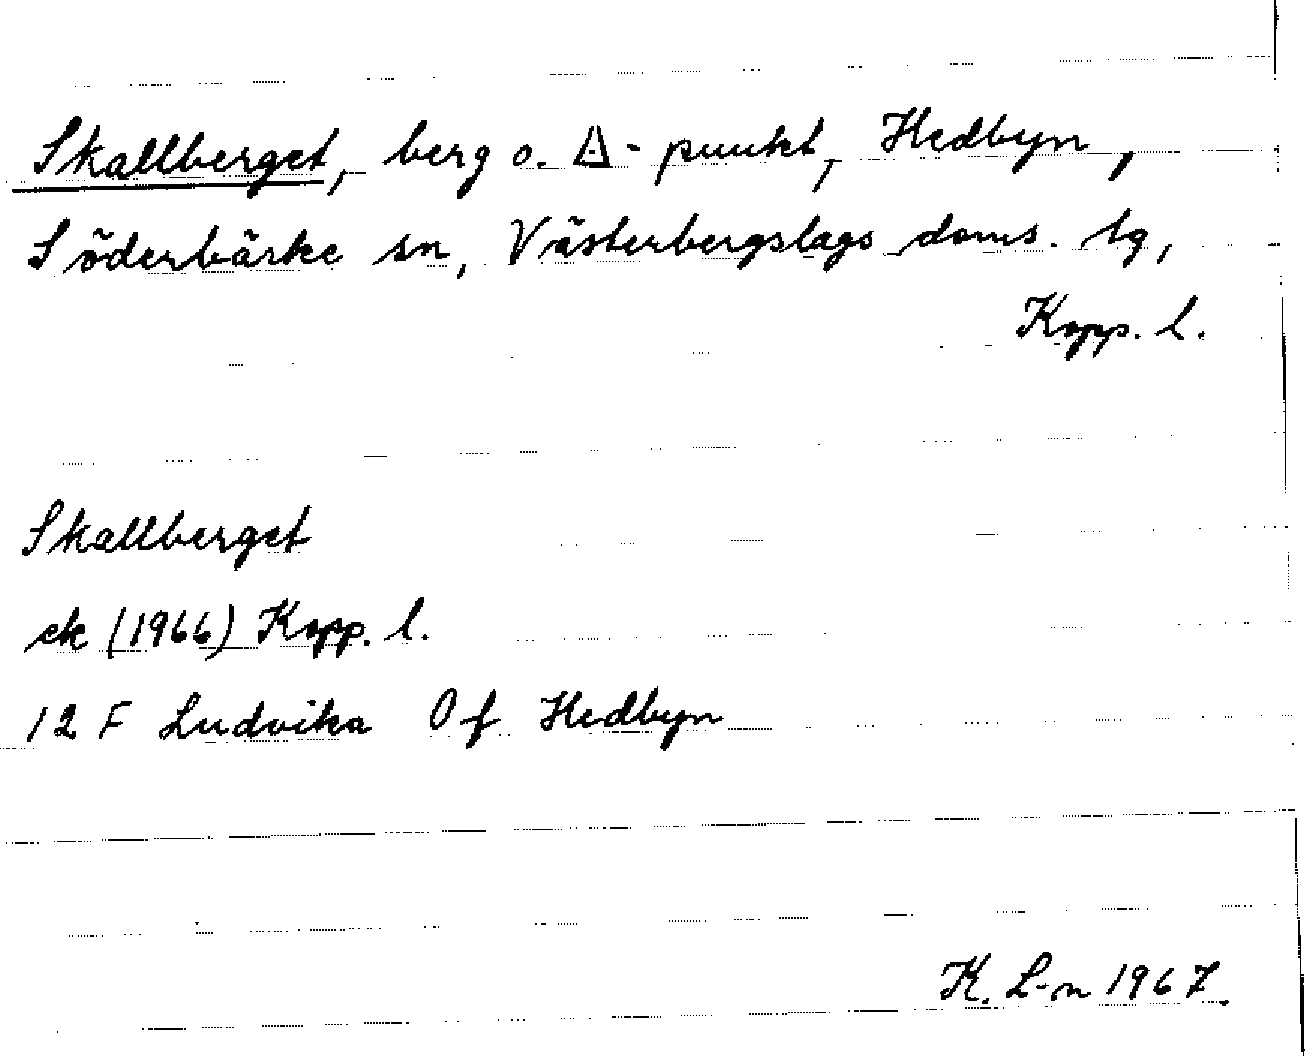 Skallberget, berg o. ◬-punkt, Hedbyn,
Söderbärke sn, Västerbergslags doms. tg,
Kopp. l.
Skallberget
ek (1966) Kopp. l.
12 F Ludvika 0 f Hedbyn
K. L-n 1967.